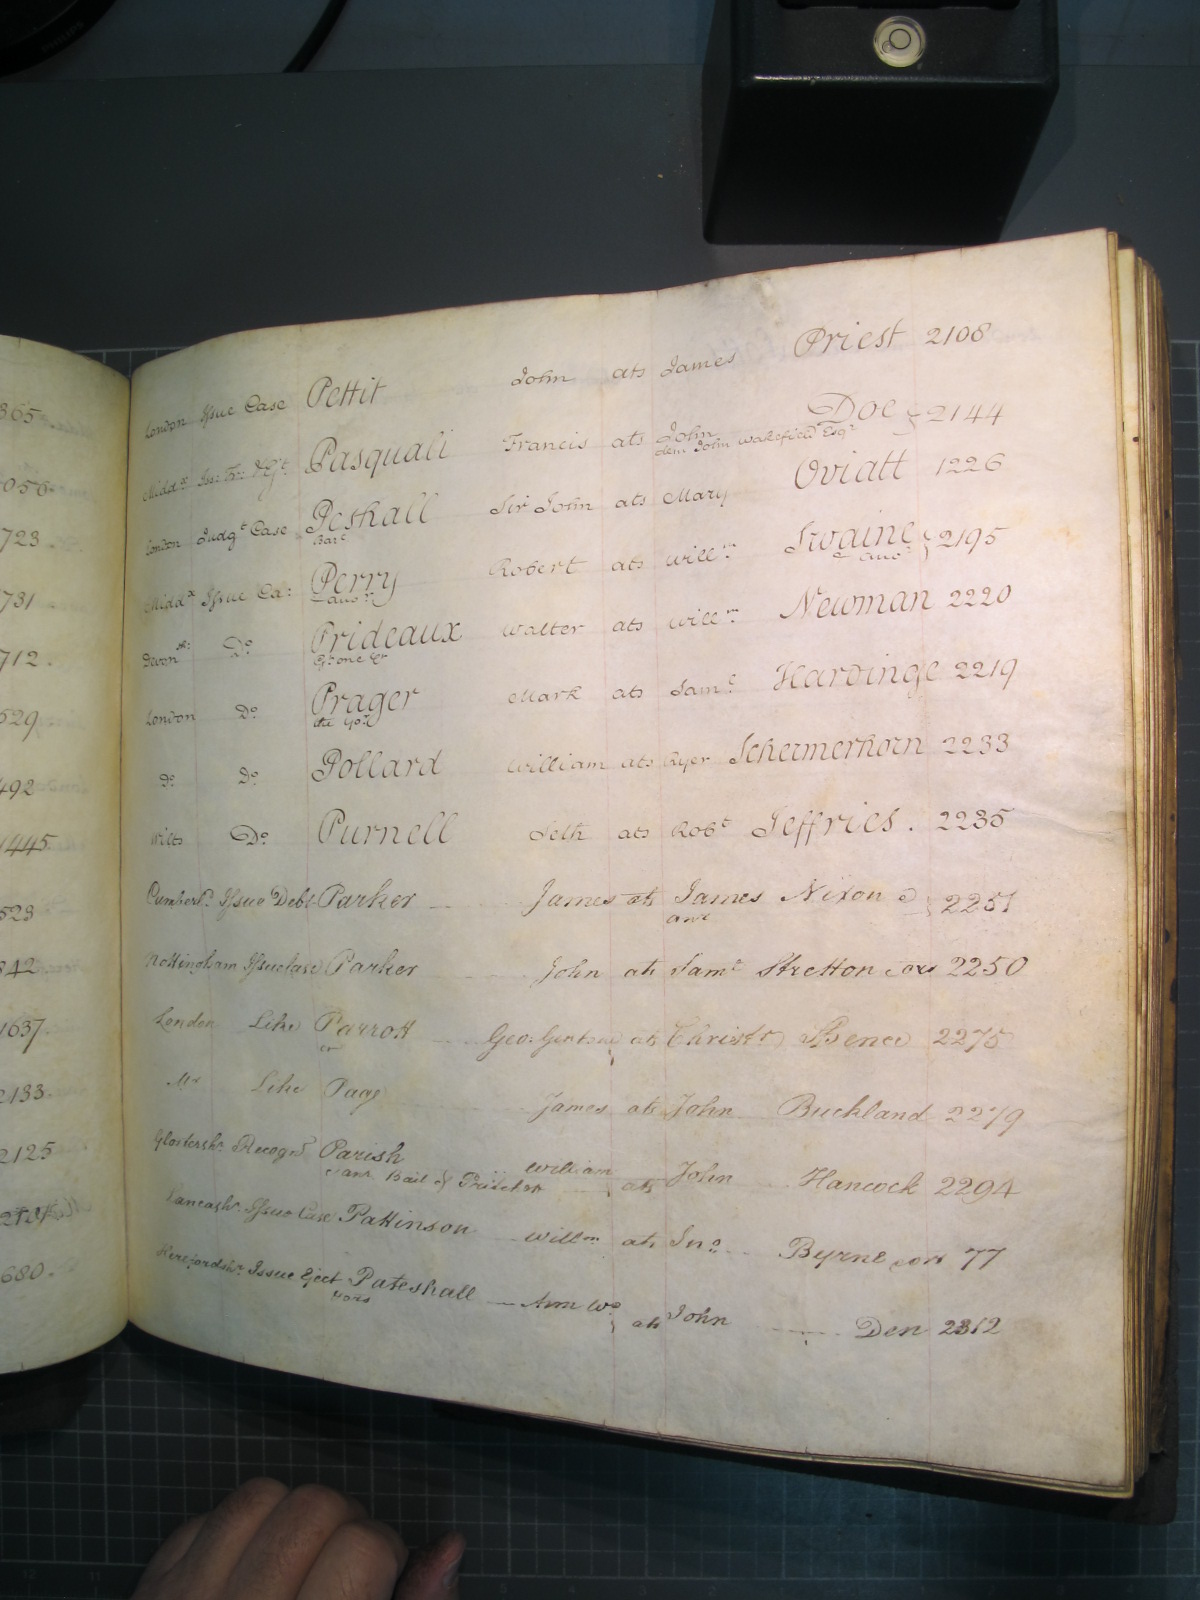 365
London Issue Case Pettit John ats James Priest 2108
Midd.x Iss: Tr: & Gt Pasquali Francis ats John Doe } 2144
dem John Wakefield Esq.r
056
London Judg.t Case Peshall Sir John ats Mary Oviatt 1226
Bar.t
723
Midd.x Issue Ca: Perry Robert ats Will.m Swaine } 2195
& ano.r & ano.r
731
Devon D.o Prideaux Walter ats Will.m Newman 2220
G.t one &c
712.
London D.o Prager Mark ats Sam.l Hardinge 2219
the yo.r
529
D.o D.o Pollard William ats Ryer Schermerhorn 2233
492
Wilts D.o Purnell Seth ats Rob.t Jeffries . 2235
1445
Cumberl.d Issue Debt Parker James ats James Nixon & } 2251
an.r
523
Nottingham Issue Case Parker John ats Sam.l Stretton & ors 2250
842
London Like Parrott Geo: ats Christ.r Spence 2275
1637.
Mx Like Page James ats John Buckland 2279
2133.
Glostersh.r Recog.e Parish William ats John Hancock 2294
& an.r Bail of
2125
Lancash.r Issue Case Pattinson Will.m ats Jn.o Byrne & or 77
Herefordsh.r Issue Eject Pateshall Ann W.o ats John Den 2312
& ors
680.